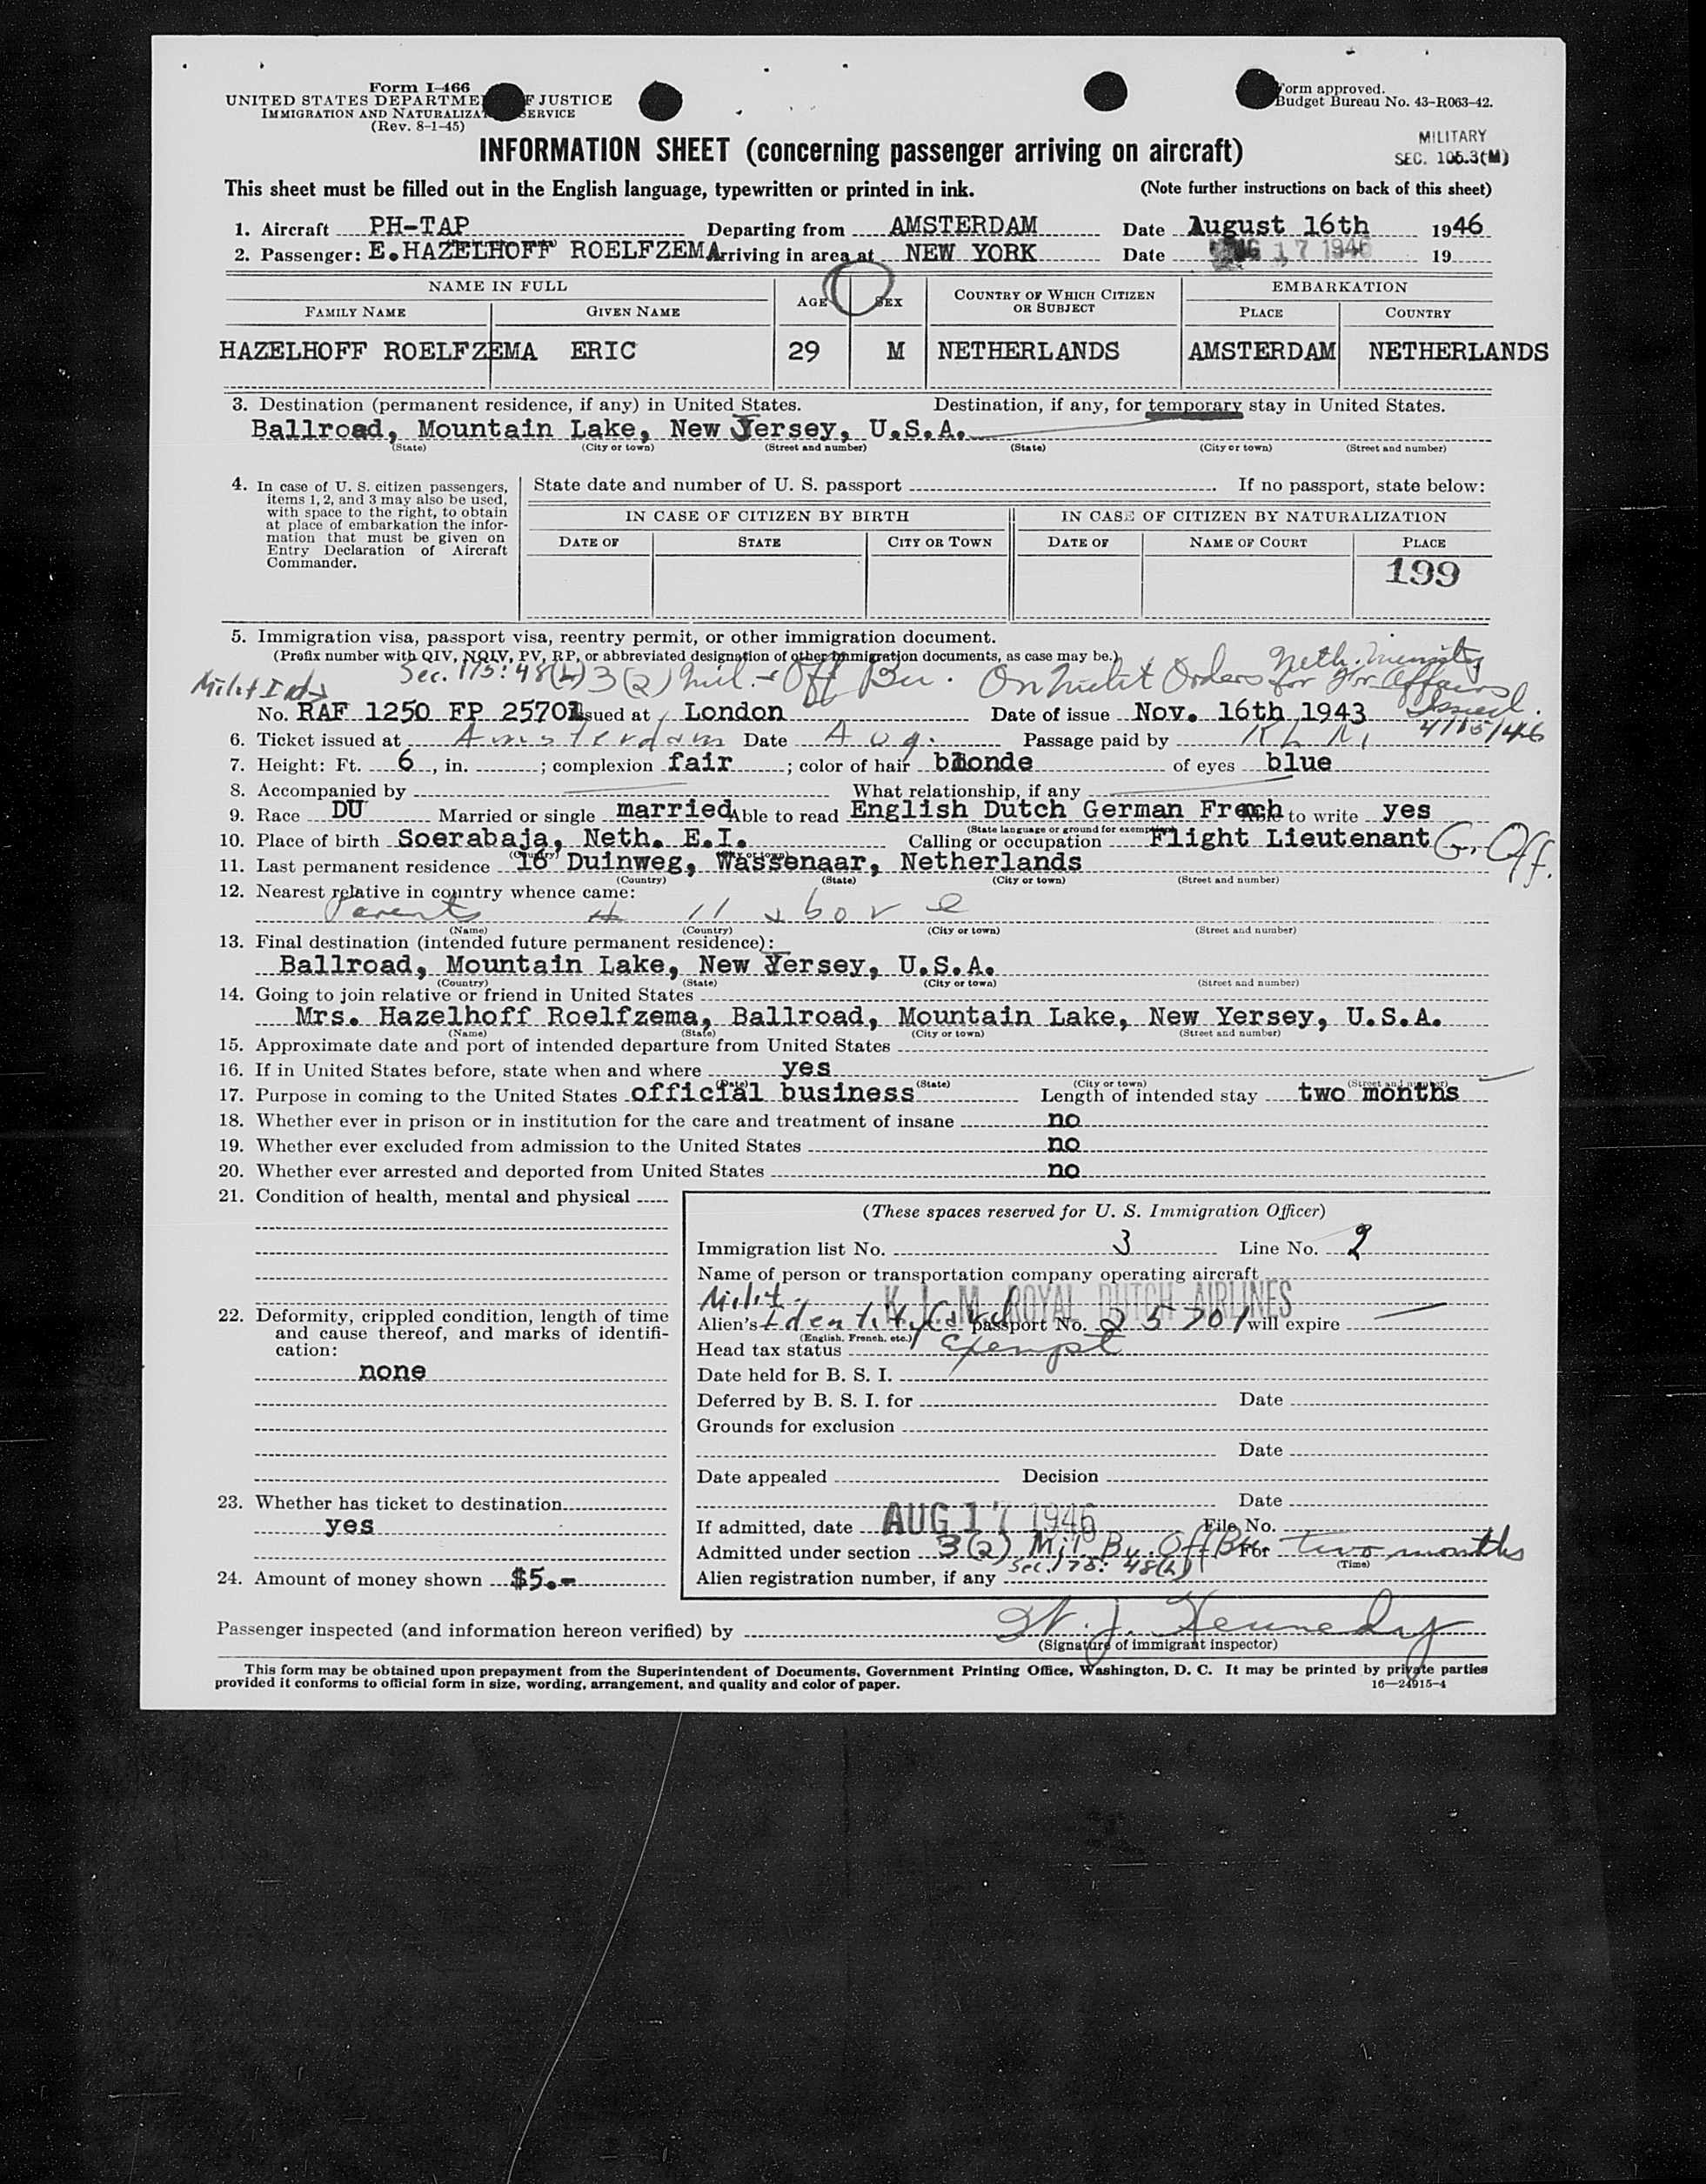 Form I-466
UNITED STATES DEPARTME F JUSTICE
IMMIGRATION AND NATURALIZAT SERVICE
(Rev. 8-1-45)
Form approved.
Budget Bureau No. 43-R063-42.
MILITARY
SEC. 105.3(M)
INFORMATION SHEET (concerning passenger arriving on aircraft)
This sheet must be filled out in the English language, typewritten or printed in ink. (Note further instructions on back of this sheet)
1. Aircraft PH-TAP Departing from AMSTERDAM Date August 16th 1946
2. Passenger: E.HAZELHOFF ROELFZEMA Arriving in area at NEW YORK Date AUG 17 1946 19
NAME IN FULL AGE SEX COUNTRY OF WHICH CITIZEN OR SUBJECT EMBARKATION
FAMILY NAME GIVEN NAME PLACE COUNTRY
HAZELHOFF ROELFZEMA ERIC 29 M NETHERLANDS AMSTERDAM NETHERLANDS
3. Destination (permanent residence, if any) in United States. Destination, if any, for temporary stay in United States.
Ballroad, Mountain Lake, New Jersey, U.S.A.
(State) (City or town) (Street and number) (State) (City or town) (Street and number)
4. In case of U. S. citizen passengers, items 1, 2, and 3 may also be used, with space to the right, to obtain at place of embarkation the information that must be given on Entry Declaration of Aircraft Commander.
State date and number of U. S. passport If no passport, state below:
IN CASE OF CITIZEN BY BIRTH IN CASE OF CITIZEN BY NATURALIZATION
DATE OF STATE CITY OR TOWN DATE OF NAME OF COURT PLACE
199
5. Immigration visa, passport visa, reentry permit, or other immigration document.
(Prefix number with QIV, NQIV, PV, RP, or abbreviated designation of other immigration documents, as case may be.)
Sec. 175:48(h) 3(2) Mil. Off Bu. On Milit Orders Neth. Ministry for For Affairs
Issued 4/15/46
No. RAF 1250 FP 25701 Issued at London Date of issue Nov. 16th 1943
6. Ticket issued at Amsterdam Date Aug. Passage paid by KLM
7. Height: Ft. 6, in. ; complexion fair ; color of hair blonde of eyes blue
8. Accompanied by What relationship, if any
9. Race DU Married or single married Able to read English Dutch German French Able to write yes
(State language or ground for exemption)
10. Place of birth Soerabaja, Neth. E.I. Calling or occupation Flight Lieutenant G. Off.
(Country) (City or town)
11. Last permanent residence 16 Duinweg, Wassenaar, Netherlands
(Country) (State) (City or town) (Street and number)
12. Nearest relative in country whence came:
Parents # 11 above
(Name) (Country) (City or town) (Street and number)
13. Final destination (intended future permanent residence):
Ballroad, Mountain Lake, New Jersey, U.S.A.
(Country) (State) (City or town) (Street and number)
14. Going to join relative or friend in United States
Mrs. Hazelhoff Roelfzema, Ballroad, Mountain Lake, New Yersey, U.S.A.
(Name) (State) (City or town) (Street and number)
15. Approximate date and port of intended departure from United States
16. If in United States before, state when and where yes
(Date) (State) (City or town) (Street and number)
17. Purpose in coming to the United States official business Length of intended stay two months
18. Whether ever in prison or in institution for the care and treatment of insane no
19. Whether ever excluded from admission to the United States no
20. Whether ever arrested and deported from United States no
21. Condition of health, mental and physical
22. Deformity, crippled condition, length of time and cause thereof, and marks of identification:
none
23. Whether has ticket to destination
yes
24. Amount of money shown $5.-
(These spaces reserved for U. S. Immigration Officer)
Immigration list No. 3 Line No. 2
Name of person or transportation company operating aircraft
K L M ROYAL DUTCH AIRLINES
Milit.
Alien's Identity Card passport No. 25701 will expire
(English, French, etc.)
Head tax status Exempt
Date held for B. S. I.
Deferred by B. S. I. for Date
Grounds for exclusion
Date
Date appealed Decision
Date
If admitted, date AUG 17 1946 File No.
Admitted under section 3(2) Mil Bu. Off Bu. For two months
(Time)
Sec. 175: 48(h)
Alien registration number, if any
Passenger inspected (and information hereon verified) by W. J. Kennedy
(Signature of immigrant inspector)
This form may be obtained upon prepayment from the Superintendent of Documents, Government Printing Office, Washington, D. C. It may be printed by private parties
provided it conforms to official form in size, wording, arrangement, and quality and color of paper. 16—24915-4